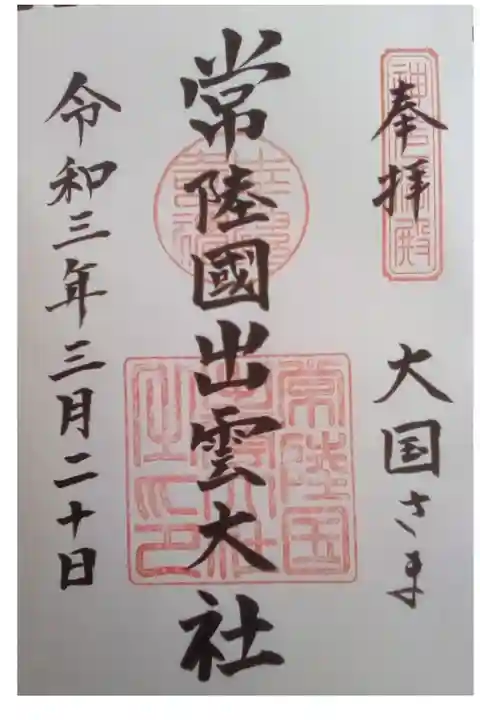 奉拝
大国さま
常陸國出雲大社
常陸国
出雲大社
之印
令和三年三月二十日